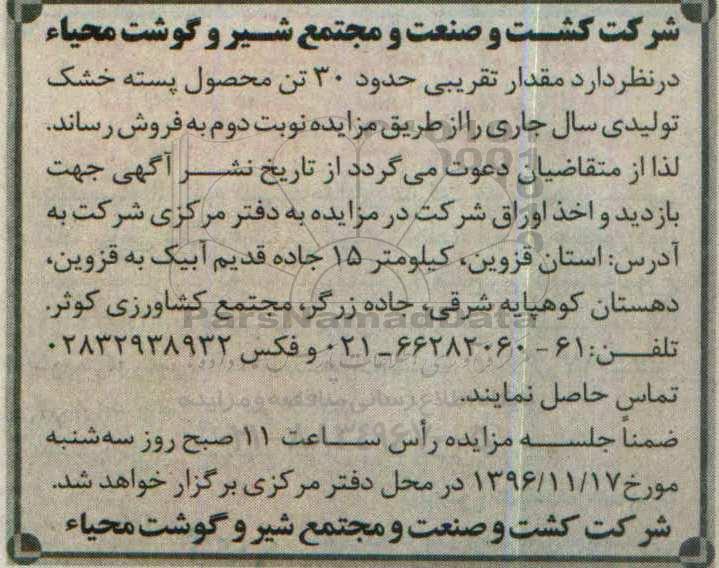 شرکت کشت و صنعت و مجتمع شیر و گوشت محیاء
درنظردارد مقدار تقریبی حدود ۳۰ تن محصول پسته خشک
تولیدی سال جاری را از طریق مزایده نوبت دوم به فروش رساند.
لذا از متقاضیان دعوت می گردد از تاریخ نشر آگهی جهت
بازدید و اخذ اوراق شرکت در مزایده به دفتر مرکزی شرکت به
آدرس: استان قزوین، کیلومتر ۱۵ جاده قدیم آبیک به قزوین،
دهستان کوهپایه شرقی، جاده زرگر، مجتمع کشاورزی کوثر.
ParsNamadData
تلفن: ۶۱ - ۶۶۲۸۲۰۶۰ - ۰۲۱ و فکس ۰۲۸۳۲۹۳۸۹۳۲
تماس حاصل نمایند.
ضمناً جلسه مزایده رأس ساعت ۱۱ صبح روز سه شنبه
مورخ ۱۳۹۶/۱۱/۱۷ در محل دفتر مرکزی برگزار خواهد شد.
شرکت کشت و صنعت و مجتمع شیر و گوشت محیاء